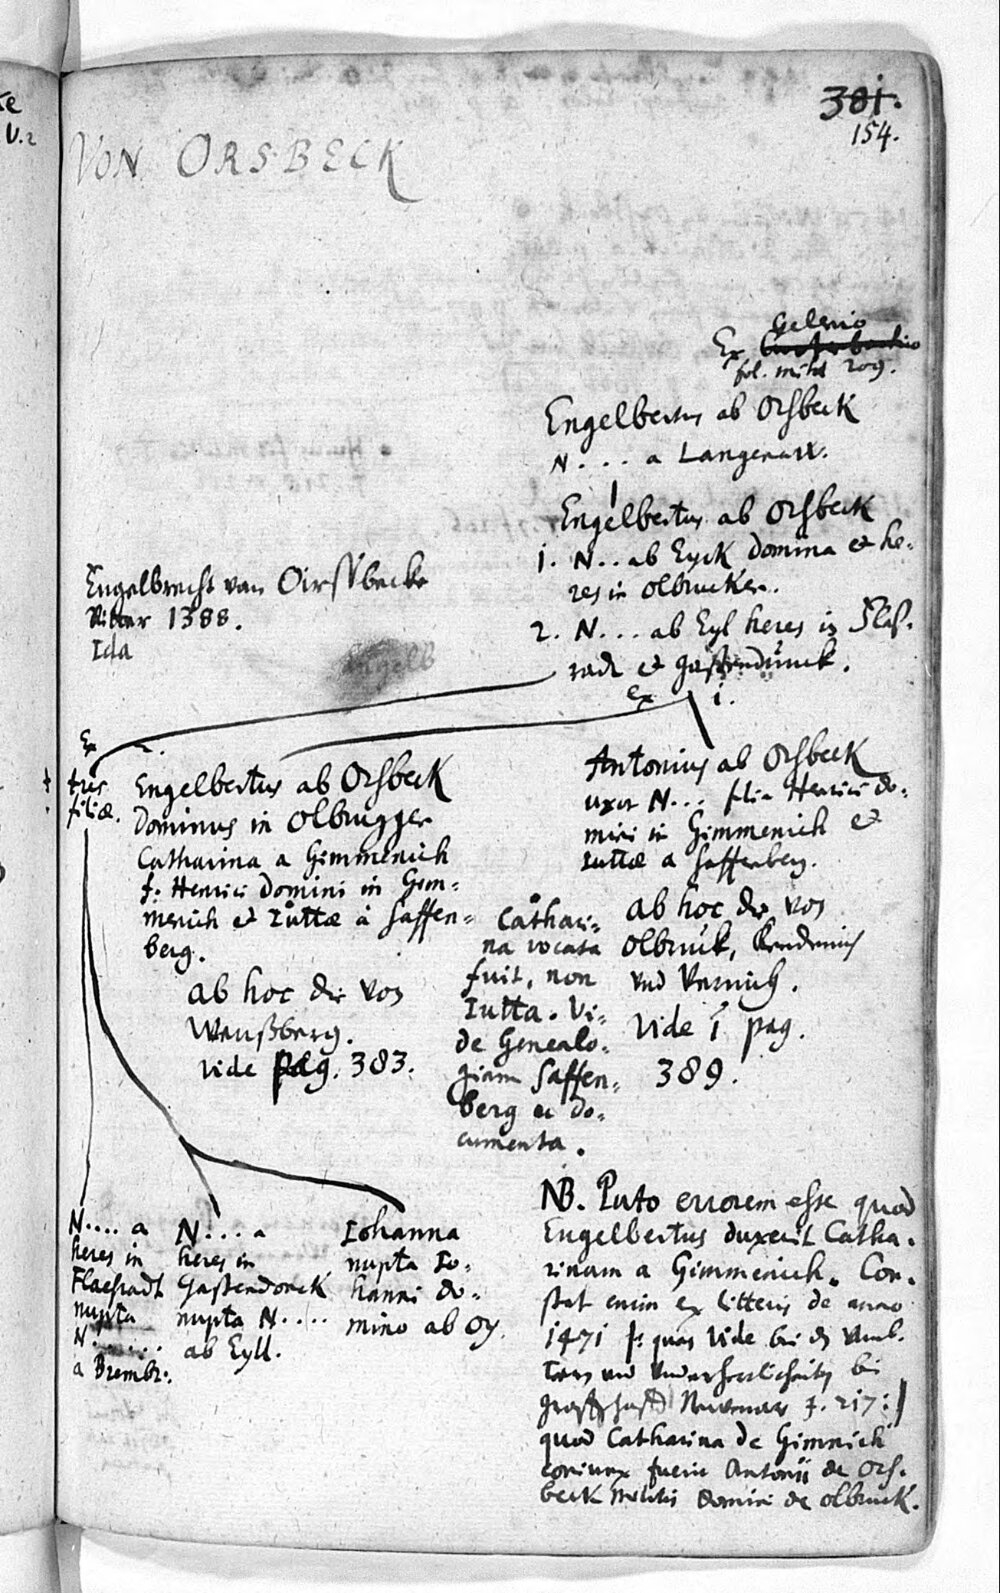 381.
154.
VON ORSBECK
Gelenio
Ex
fol. mihi 209.
Engelbertus ab Orsbeck
N.... a Langenau.
Engelbertus ab Orsbeck
1. N.. ab Eyck domina et he-
res in Olbrucken.
2. N... ab Eyl heres in Flas-
radt et Gastendunck.
Ex 1.
Engelbrecht van Oirssbecke
Ritter 1388.
Ida
Engelb
Ex 2.
tres
filiæ.
Engelbertus ab Orsbeck
Dominus in Olbrugger
Catharina a Gimmenich
f: Henrici Domini in Gim-
menich et Iuttæ a Saffen-
berg.
ab hoc die von
Wensberg.
vide pag. 383.
Antonius ab Orsbeck
uxor N... filia Henrici do-
mini in Gimmenich et
Iuttæ a Saffenberg.
ab hoc die von
Olbruck,
und Vernich.
Vide pag.
389.
Cathari-
na vocata
fuit, non
Iutta. Vi-
de Genealo-
giam Saffen-
berg et do-
cumenta.
N.... a
heres in
Flaesradt
nupta
N......
a Brembt.
N.... a
heres in
Gastendonck
nupta N.....
ab Eyll.
Iohanna
nupta Io-
hanni do-
mino ab Oy.
NB. Puto errorem esse quod
Engelbertus duxerit Catha-
rinam a Gimmenich. Con-
stat enim ex litteris de anno
1471 f: quas vide bei den
und bei
f. 217:
quod Catharina de Gimnich
coniunx fuerit Antonii de Ors-
beck Militis Domini de Olbruck.